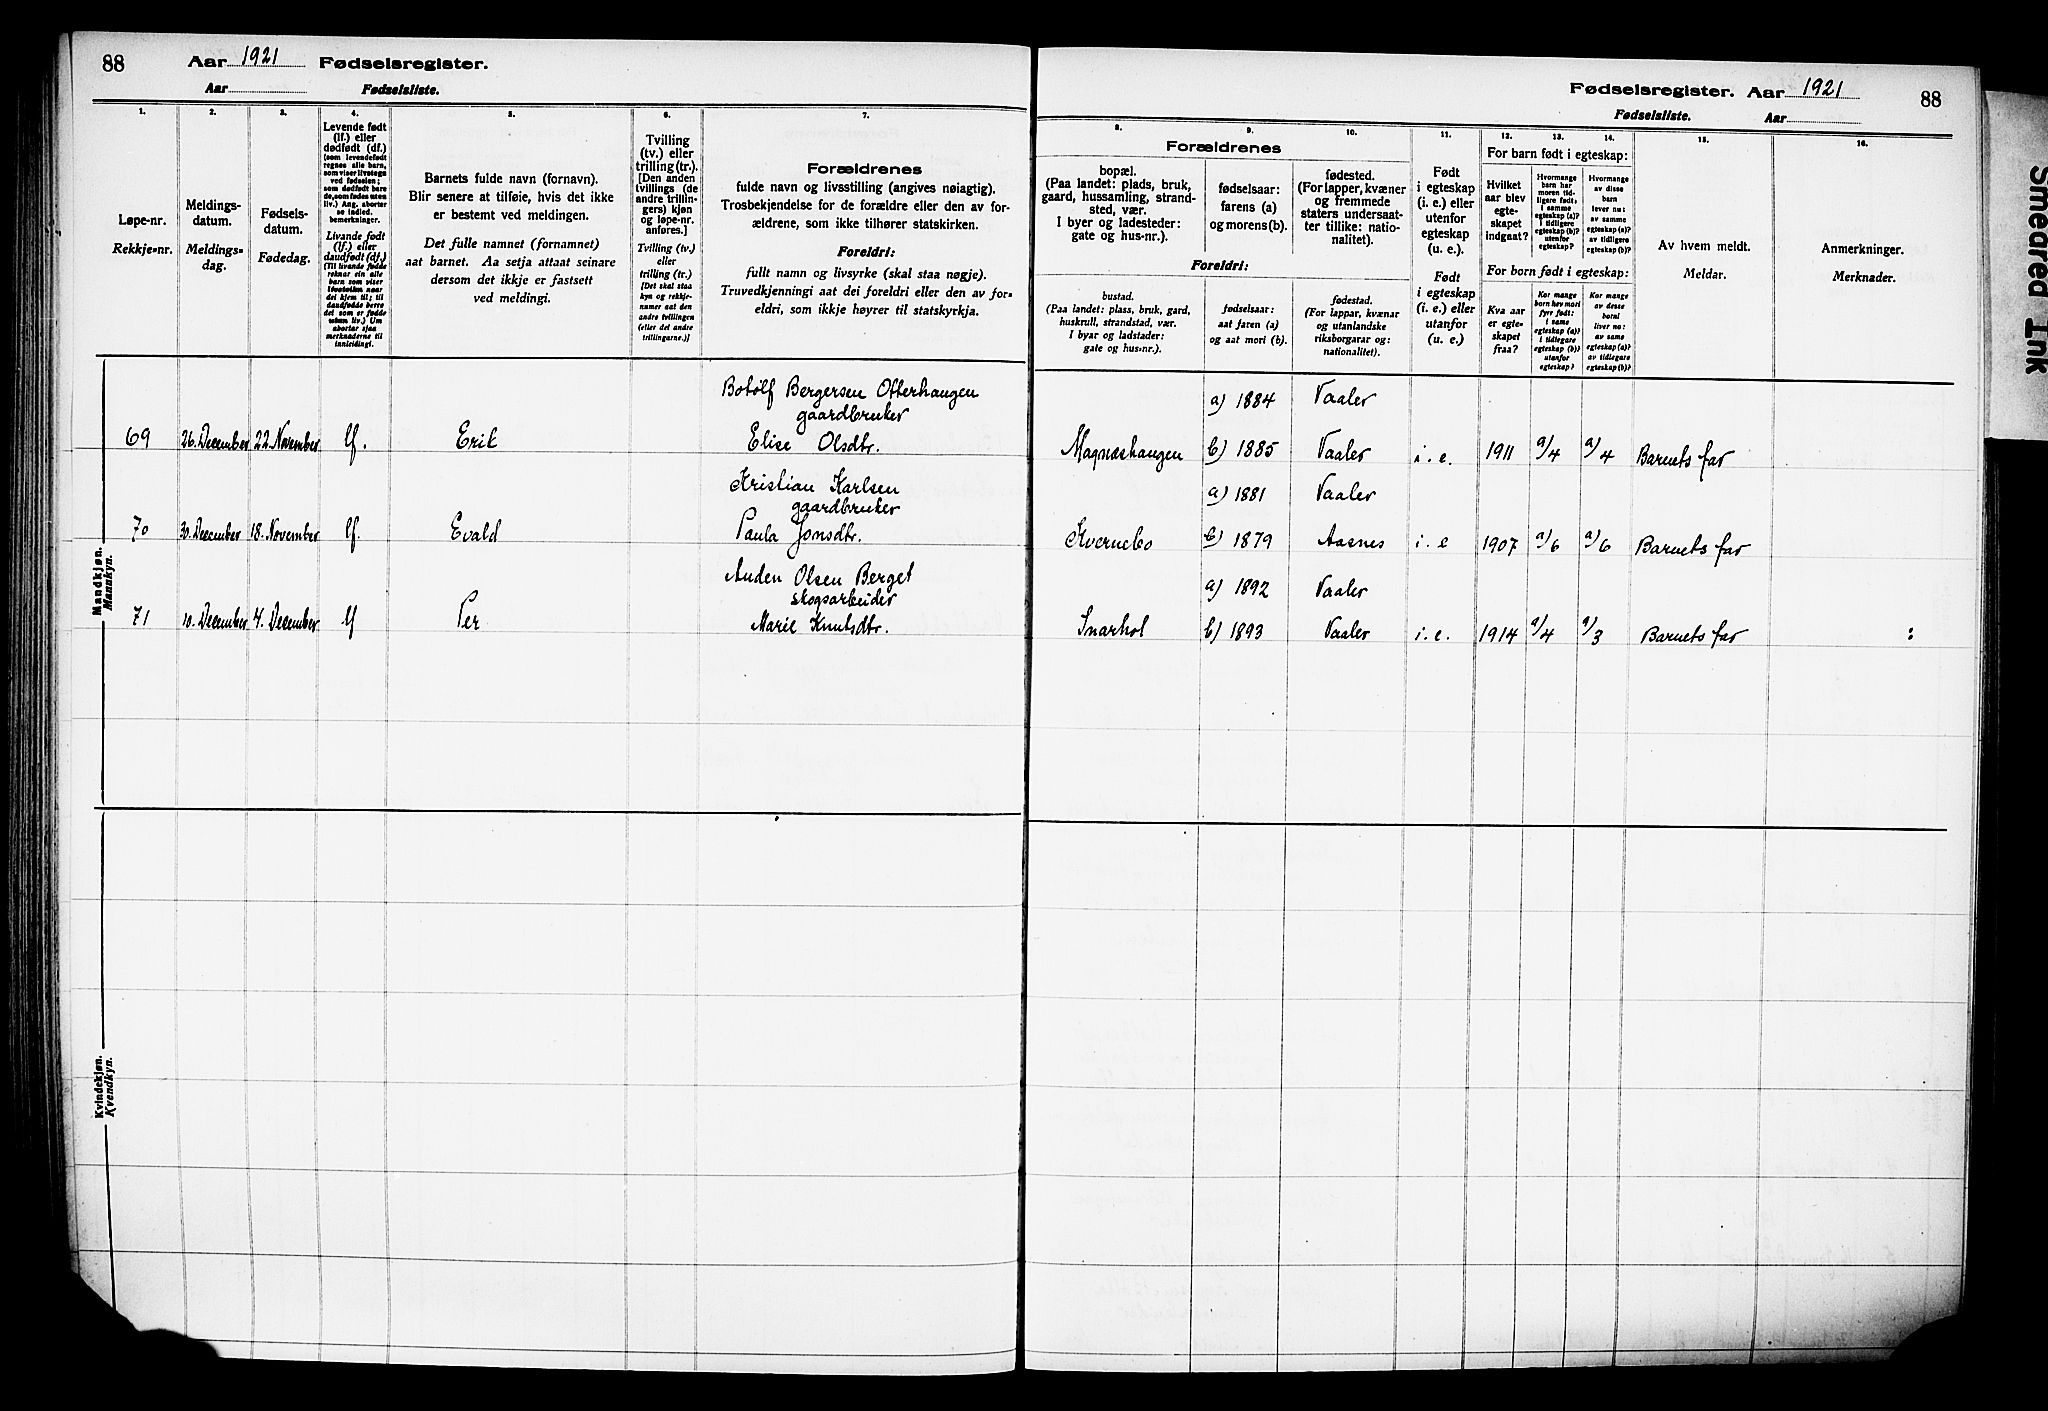 88
Aar 1921 Fødselsregister.
Aar Fødselsliste.
1.
2.
3.
4.
5.
6.
7.
Løpe-nr.
Rekkje-nr.
Meldings-
datum.
Meldings-
dag.
Fødsels-
datum.
Fødedag.
Levende født
(lf.) eller
dødfødt (df.)
(som levendefødt
regnes alle barn,
som viser livstegn
ved fødselen;
som dødfødt bare
de, som fødes uten
liv.) Ang. aborter
se indled.
bemerkninger.
Livande født
(lf.) eller
daudfødt (df.)
Barnets fulde navn (fornavn).
Blir senere at tilføie, hvis det ikke
er bestemt ved meldingen.
Det fulle namnet (fornamnet)
aat barnet. Aa setja attaat seinare
dersom det ikkje er fastsett
ved meldingi.
Tvilling
(tv.) eller
trilling (tr.).
[Den anden
tvillings (de
andre trillin-
gers) kjøn
og løpe-nr.
anføres.]
Tvilling (tv.)
eller
trilling (tr.)
[Det skal staa
kyn og rekkje-
numer aat den
andre tvillingen
(eller dei andre
trillingarne.)]
Forældrenes
fulde navn og livsstilling (angives nøiagtig).
Trosbekjendelse for de forældre eller den av for-
ældrene, som ikke tilhører statskirken.
Foreldri:
fullt namn og livsyrke (skal staa nøgje).
Truvedkjenningi aat dei foreldri eller den av for-
eldri, som ikkje høyrer til statskyrkja.
Mandkjøn.
Mannkyn.
Botolf Bergersen Ofterhaugen
gaardbruker
69 26. December 22. November lf. Erik Elise Olsdtr.
Kristian Karlsen
gaardbruker
70 30. December 18. November lf. Evald Paula Jonsdtr.
Auden Olsen Berget
skogsarbeider
71 10. December 4. December lf Per Marie Knutsdtr.
Kvindekjøn.
Kvendkyn.
Fødselsregister. Aar 1921
88
Fødselsliste. Aar
8.
9.
10.
11.
12.
13.
14.
15.
16.
Forældrenes
bopæl.
(Paa landet: plads, bruk,
gaard, hussamling, strand-
sted, vær.
I byer og ladesteder:
gate og hus-nr.).
fødselsaar:
farens (a)
og morens (b).
fødested.
(For lapper, kvæner
og fremmede
staters undersaat-
ter tillike: natio-
nalitet).
Foreldri:
bustad.
(Paa landet: plass, bruk, gard,
huskrull, strandstad, vær.
I byar og ladstader:
gate og hus-nr.).
fødselsaar:
aat faren (a)
og aat mori (b).
fødestad.
(For lappar, kvænar
og utanlandske
riksborgarar og:
nationalitet).
Født
i egteskap
(i. e.) eller
utenfor
egteskap
(u. e.).
Født
i egteskap
(i. e.) eller
utanfor
(u. e.)
For barn født i egteskap:
Hvilket
aar blev
egte-
skapet
indgaat?
Hvormange
barn har
moren tid-
ligere født,
i samme
egteskap (a)?
i tidligere
egteskap (b)?
utenfor
egteskap?
Hvormange
av disse
barn
lever nu:
av samme
egteskap (a)?
av tidligere
egteskap (b)?
For born født i egteskap:
Kva aar
er egte-
skapet
fraa?
Kor mange
born hev mori
fyrr født:
i same
egteskap (a)?
i tidlegare
egteskap (b)?
utanfor
egteskap?
Kor mange
av desse
borni
liver no:
av same
egteskap (a)?
av tidlegare
egteskap (b)?
Av hvem meldt.
Meldar.
Anmerkninger.
Merknader.
a) 1884 Vaaler
Magnæshaugen b) 1885 Vaaler i. e. 1911 a/4 a/4 Barnets far
a) 1881 Vaaler
Kvernebo b) 1879 Aasnes i. e 1907 a/6 a/6 Barnets far
a) 1892 Vaaler
Snarhol b) 1893 Vaaler i. e. 1914 a/4 a/3 Barnets far
Smeared Ink